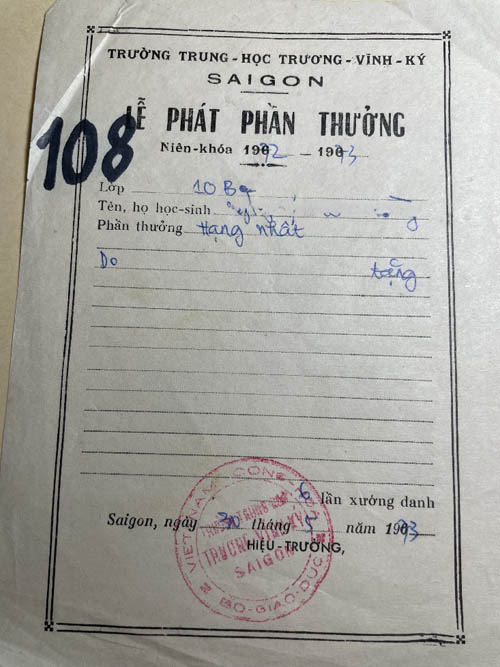 TRƯỜNG TRUNG-HỌC TRƯƠNG-VĨNH-KÝ
SAIGON
LỄ PHÁT PHẦN THƯỞNG
Niên-khóa 1972 - 1973
108
Lớp 10B
Tên, họ học-sinh
Phần thưởng Hạng nhất
Do tặng
6 lần xướng danh
Saigon, ngày 30 tháng 5 năm 1973
HIỆU-TRƯỞNG,
VIỆT-NAM CỘNG
TRƯƠNG VĨNH KÝ
SAIGON
BỘ-GIÁO-DỤC